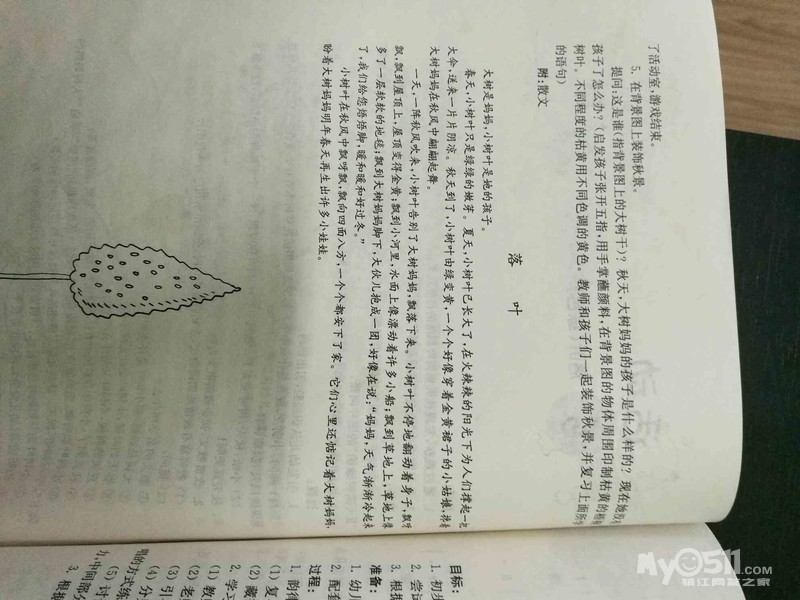 了活动室,游戏结束。
5. 在背景图上装饰秋景。
提问:这是谁(指背景图上的大树干)?秋天,大树妈妈的孩子是什么样的?现在她没有
孩子了怎么办?(启发孩子张开五指,用手掌蘸颜料,在背景图的物体周围印制枯黄的
树叶。不同程度的枯黄用不同色调的黄色。教师和孩子们一起装饰秋景,并复习上面所学
的语句)
附:散文
落 叶
大树是妈妈,小树叶是她的孩子。
春天,小树叶只是绿绿的嫩芽。夏天,小树叶已长大了,在火辣辣的阳光下为人们撑起一把
大伞,送来一片片阴凉。秋天到了,小树叶由绿变黄,一个个好像穿着金黄裙子的小姑娘,
大树妈妈在秋风中翩翩起舞。
一天,一阵秋风吹来,小树叶告别了大树妈妈,飘落下来。小树叶不停地翻动着身子,飘呀
飘,飘到屋顶上,屋顶变得金黄;飘到小河里,水面上像漂动着许多小船;飘到草地上,草地上像
多了一层软软的地毯;飘到大树妈妈脚下,大伙儿抱成一团,好像在说:“妈妈,天气渐渐冷起来
了,我们给您焐焐脚,暖和暖和好过冬。”
小树叶在秋风中飘呀飘,飘向四面八方,一个个都安下了家。它们心里还惦记着大树妈妈,
盼着大树妈妈明年春天再生出许多小娃娃。
目标:
1. 初步
2. 尝试
3. 根据
准备:
1. 幼儿
2. 配套
过程:
1. 韵律
(1) 复
(2) 藏
2. 学习
(1) 教
(2) 老
(3) 引
(4) 分
的方式练
(5) 讨
力,中间部分
3. 根据
My0511.com
镇江网友之家